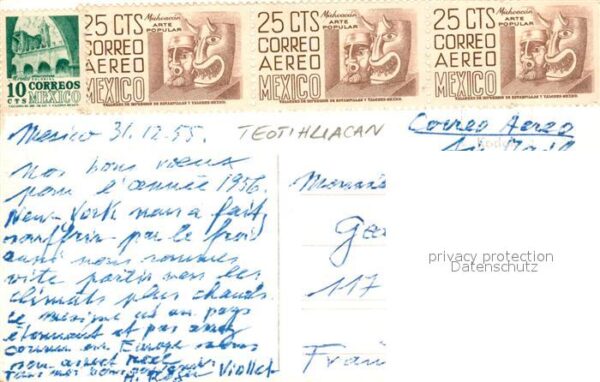 10 CORREOS
CTS MEXICO
25 CTS Michoacán
CORREO ARTE
AEREO POPULAR
MEXICO
TALLERES DE IMPRESION DE ESTAMPILLAS Y VALORES-MEXICO.
25 CTS Michoacán
CORREO ARTE
AEREO POPULAR
MEXICO
TALLERES DE IMPRESION DE ESTAMPILLAS Y VALORES-MEXICO.
25 CTS Michoacán
CORREO ARTE
AEREO POPULAR
MEXICO
TALLERES DE IMPRESION DE ESTAMPILLAS Y VALORES-MEXICO.
Mexico 31.12.55.
TEOTIHUACAN
Nos bons vœux
pour l'année 1956.
New-York nous a fait
souffrir par le froid
aussi nous sommes
vite partis vers les
climats plus chauds.
Le Mexique est un pays
étonnant et pas assez
connu en Europe sous
son aspect réel
Viollet
Correo Aereo
117
privacy protection
Datenschutz